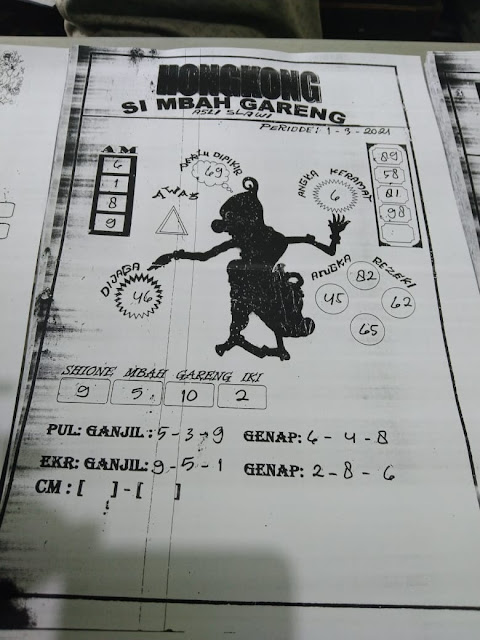 HONGKONG
SI MBAH GARENG
ASLI SLAWI
PERIODE: 1-3-2021
AM
6
1
8
9
AWAS
DIPIKIR
69
ANGKA KERAMAT
6
89
58
81
98
DIJAGA
46
ANGKA REZEKI
82
45
62
65
SHIONE MBAH GARENG IKI
9 5 10 2
PUL: GANJIL: 5-3-9 GENAP: 6-4-8
EKR: GANJIL: 9-5-1 GENAP: 2-8-6
CM : [ ] - [ ]